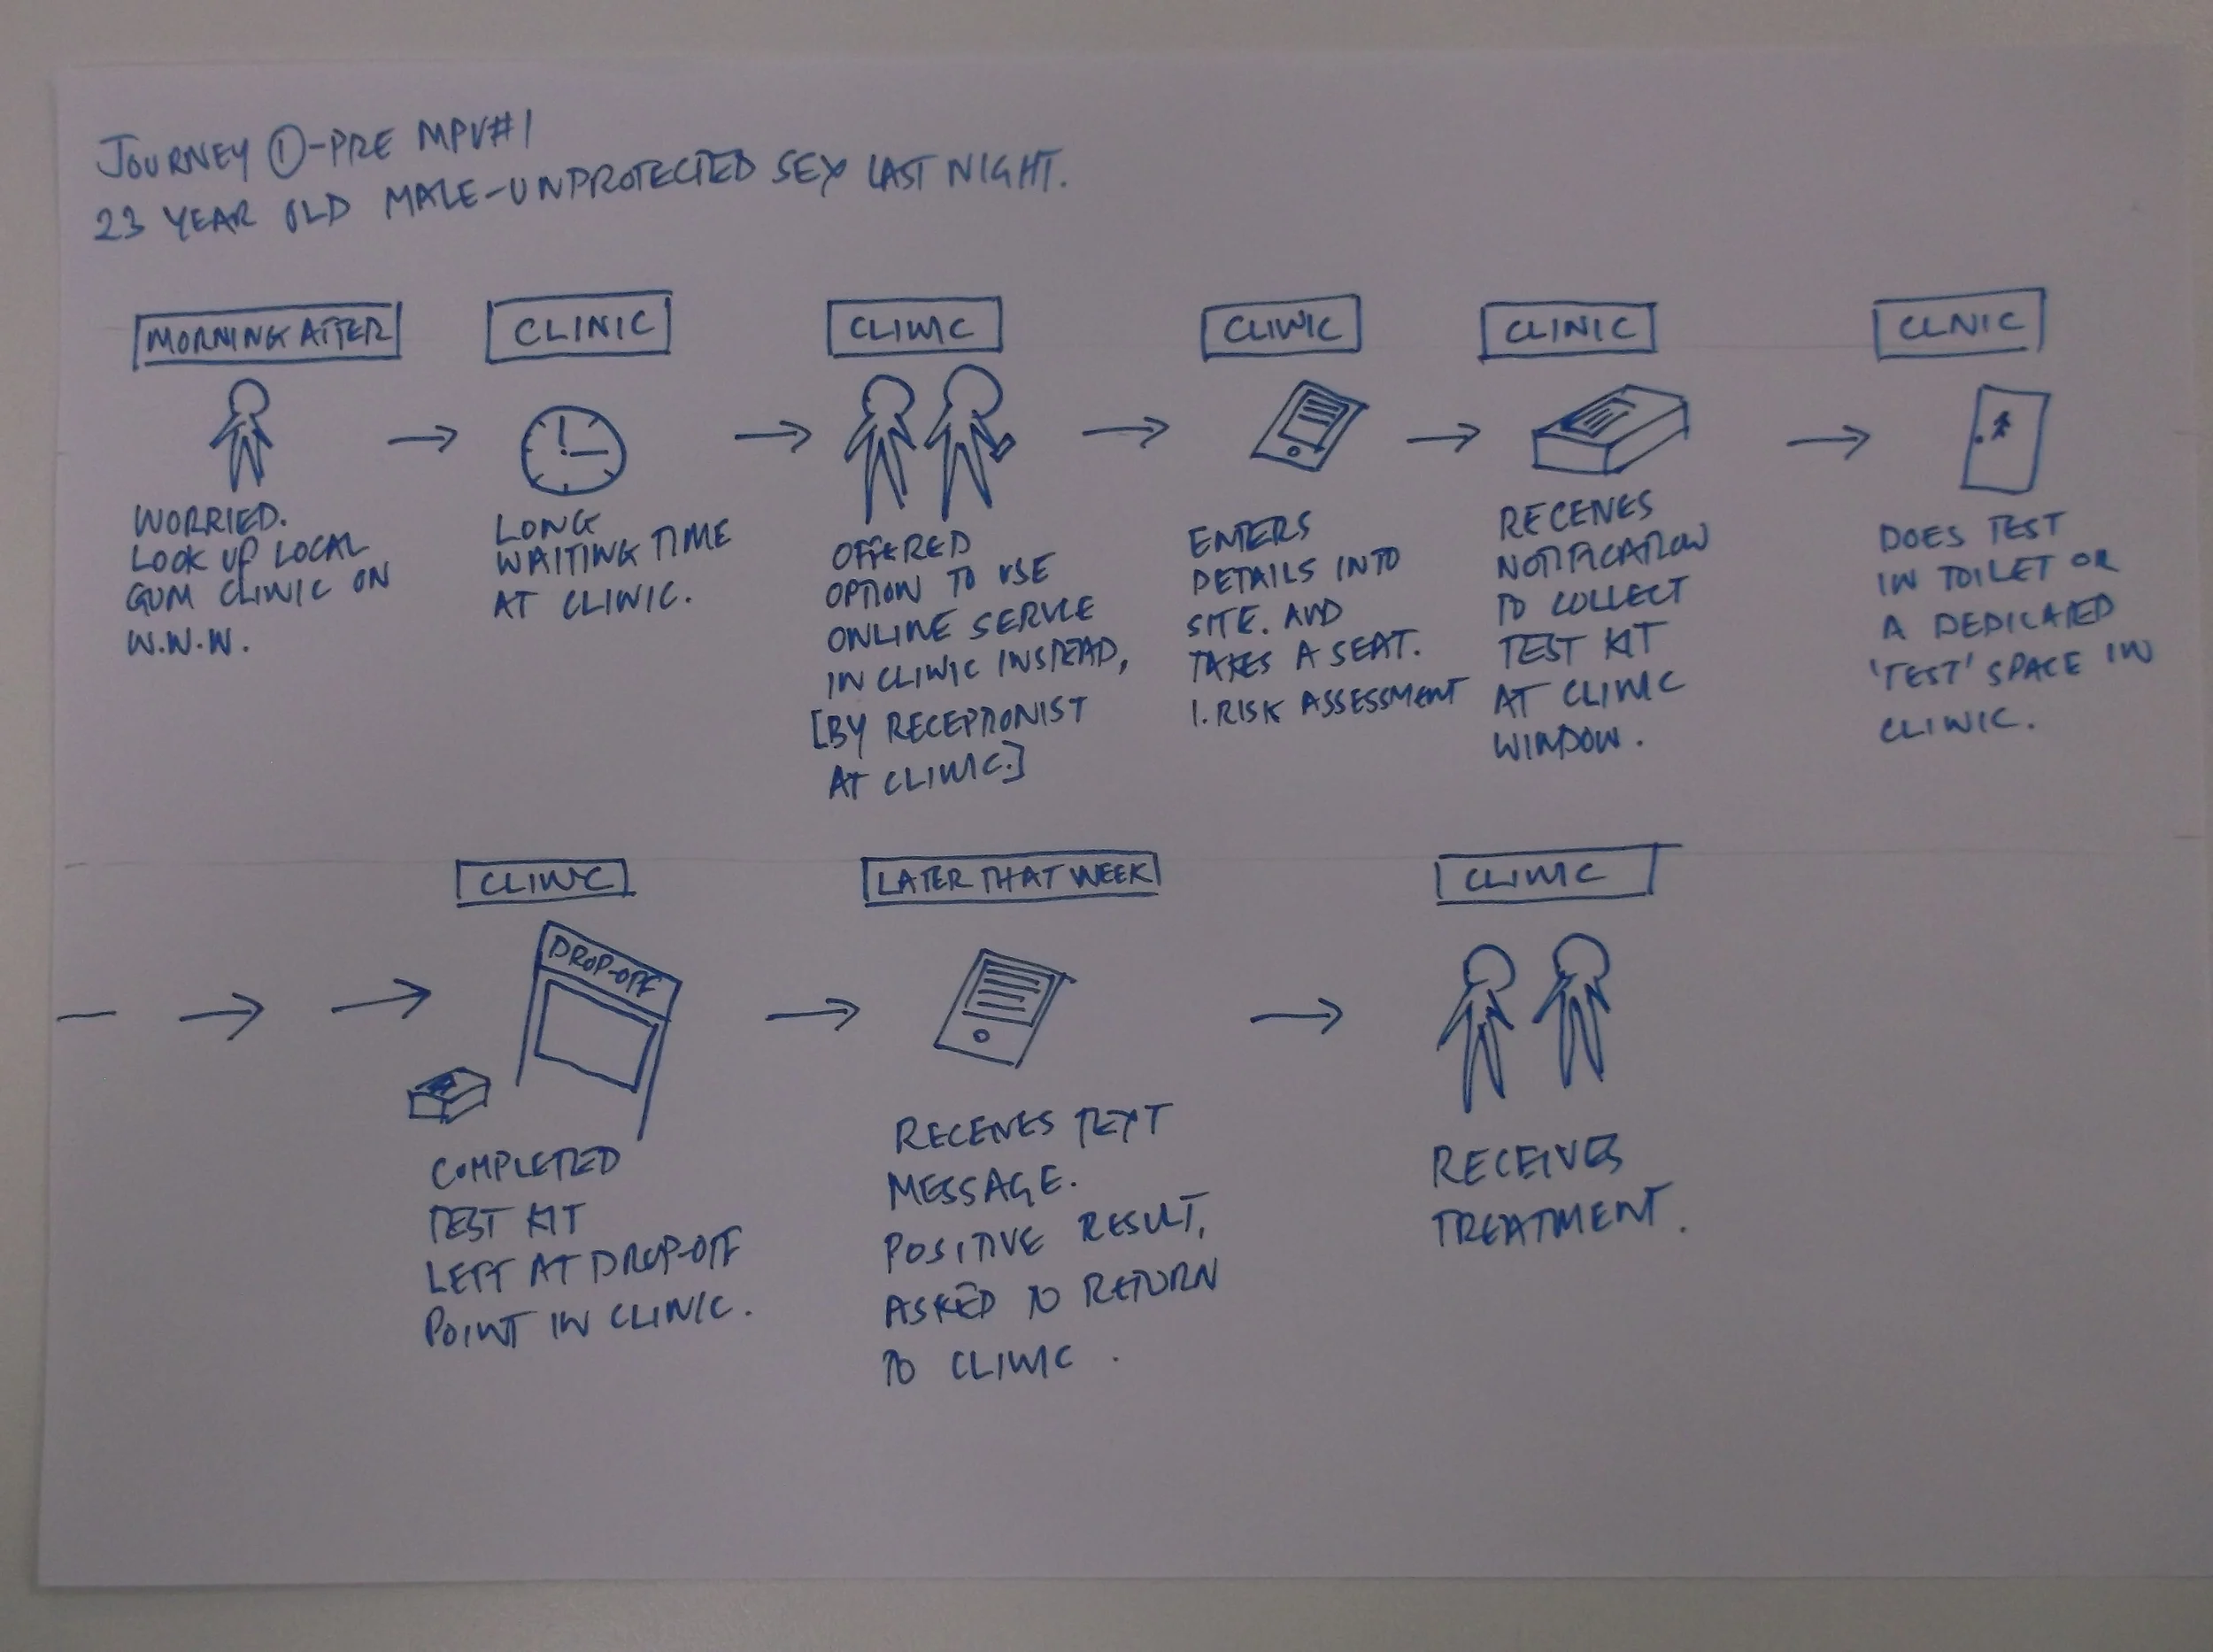 JOURNEY ①-PRE MPV#1
23 YEAR OLD MALE-UNPROTECTED SEX LAST NIGHT.
MORNING AFTER
WORRIED.
LOOK UP LOCAL
GUM CLINIC ON
W.W.W.
CLINIC
LONG
WAITING TIME
AT CLINIC.
CLINIC
OFFERED
OPTION TO USE
ONLINE SERVICE
IN CLINIC INSTEAD,
[BY RECEPTIONIST
AT CLINIC.]
CLINIC
ENTERS
DETAILS INTO
SITE. AND
TAKES A SEAT.
1. RISK ASSESSMENT
CLINIC
RECEIVES
NOTIFICATION
TO COLLECT
TEST KIT
AT CLINIC
WINDOW.
CLNIC
DOES TEST
IN TOILET OR
A DEDICATED
'TEST' SPACE IN
CLINIC.
CLINIC
DROP-OFF
COMPLETED
TEST KIT
LEFT AT DROP-OFF
POINT IN CLINIC.
LATER THAT WEEK
RECEIVES TEXT
MESSAGE.
POSITIVE RESULT,
ASKED TO RETURN
TO CLINIC.
CLINIC
RECEIVES
TREATMENT.